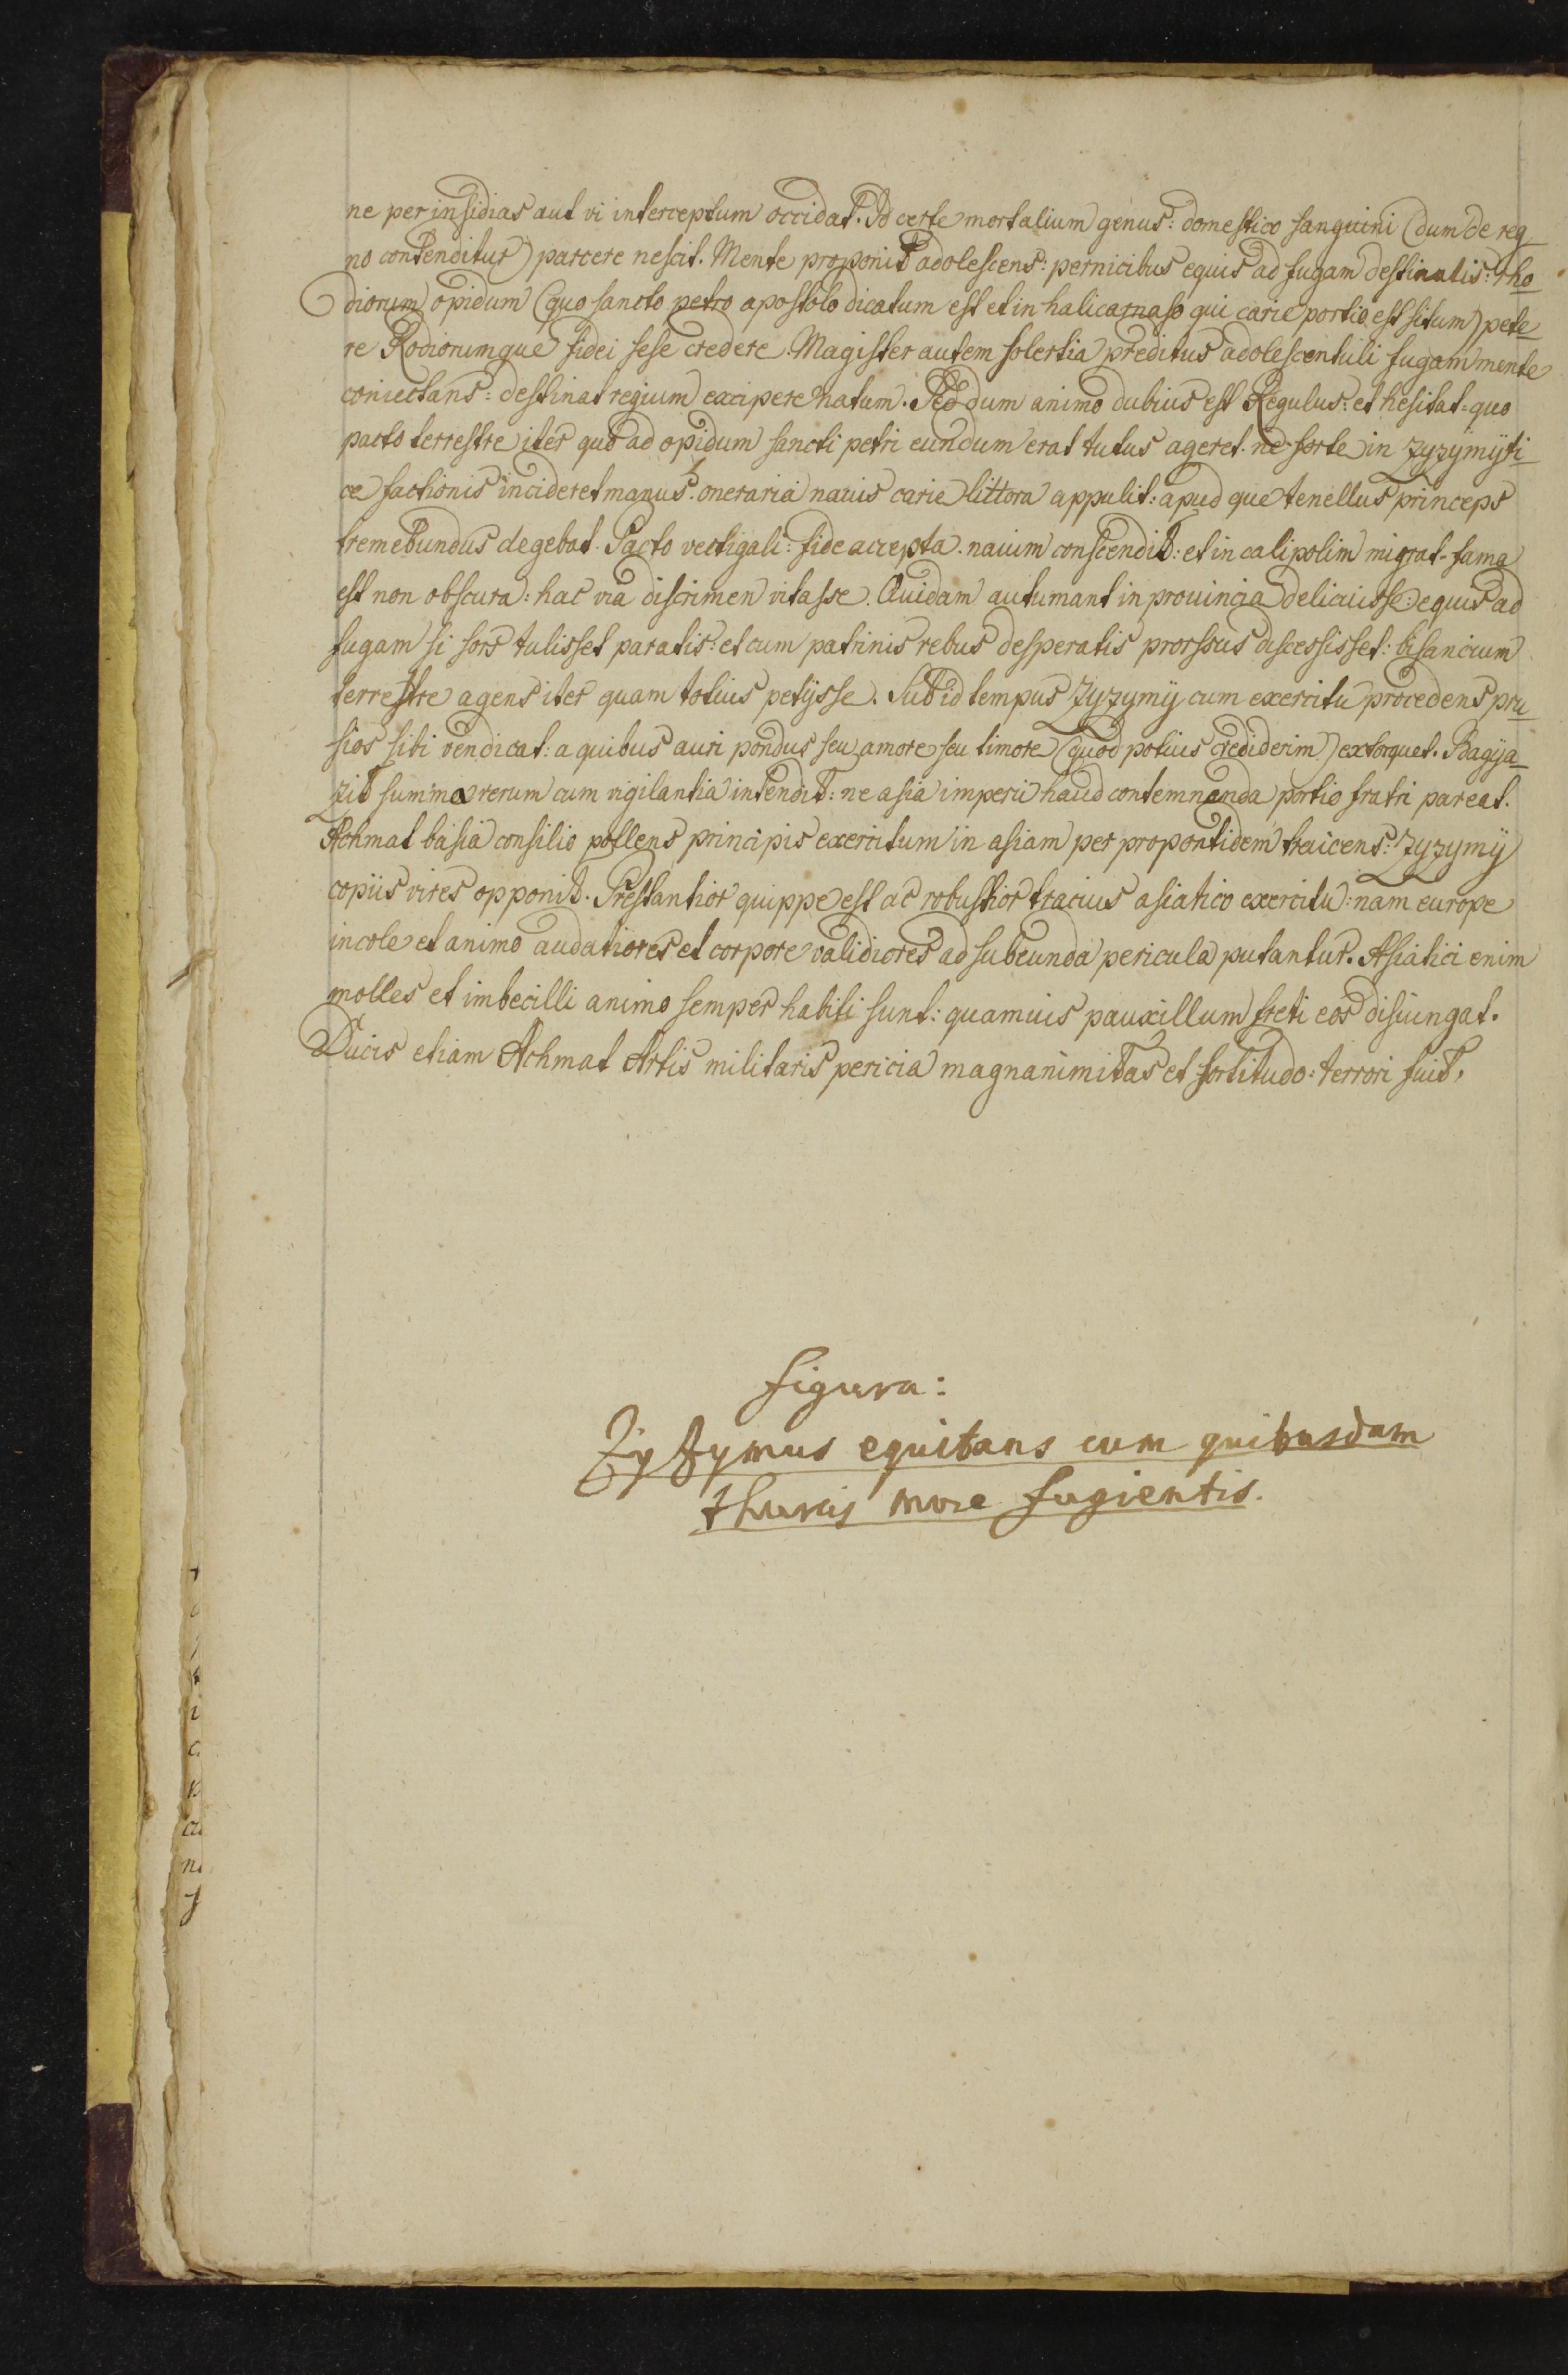 ne per insidias aut vi interceptum occidat. Id certe mortalium genus: domestico sanguini (dum de reg_
no contenditur) parcere nescit. Mente proponit adolescens: pernicibus equis ad fugam destinatis: rho_
diorum opidum (quo sancto petro apostolo dicatum est et in halicarnaso qui carie portio est situm) pete_
re Rodiorumque fidei sese credere. Magister autem solertia preditus adolescentuli fugam mente
coniectans: destinat regium excipere natum. Sed dum animo dubius est Regulus: et hesitat: quo
pacto terrestre iter quo ad opidum sancti petri eundum erat tutus ageret. ne forte in Zyzymÿti_
ce factionis incideret manus. oneraria navis carie littora appulit: apud que tenellus princeps
tremebundus degebat. Pacto vectigali: fide accepta. navim conscendit: et in calipolim migrat. fama
est non obscura: hac via discrimen vitasse. Quidam autumant in provincia delituisse: equis ad
fugam si sors tulisset paratis: et cum patrinis rebus desperatis prorssus discessisset: bisancium
terrestre agens iter quam totius petÿsse. Sub id tempus Zyzymÿ cum exercitu procedens pru_
sios sibi vendicat: a quibus auri pondus seu amore seu timore (quod potius crediderim) extorquet. Bagÿa_
zit summa rerum cum vigilantia intendit: ne asia imperii haud contemnenda portio fratri pareat.
Achmat basia consilio pollens principis exercitum in asiam per propontidem traicens: Zyzymÿ
copiis vires opponit. Prestantior quippe est ac robustior tracius asiatico exercitu: nam europe
incole et animo audatiores et corpore validiores ad subeunda pericula putantur. Asiatici enim
molles et imbecilli animo semper habiti sunt: quamuis pauxillum freti eos disiungat.
Ducis etiam Achmat Artis militaris pericia magnanimitas et fortitudo: terrori fuit.
figura:
Zyzymus equitans cum quibusdam
thurcis more fugientis.